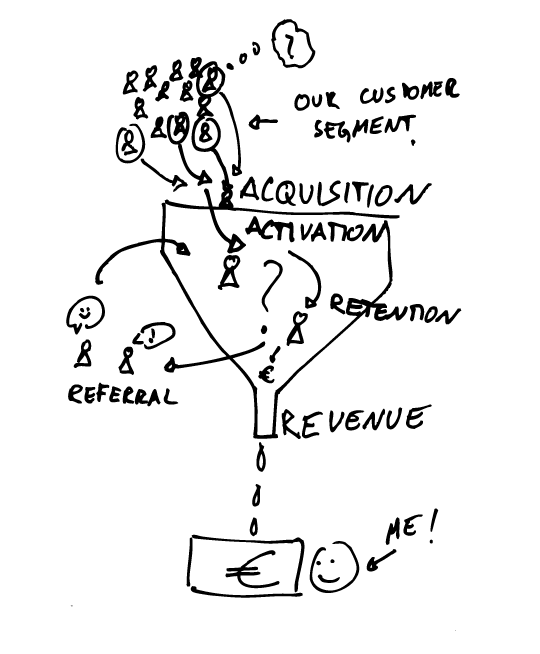 ?
OUR CUSTOMER
SEGMENT.
ACQUISITION
ACTIVATION
?
RETENTION
!
€
REFERRAL
REVENUE
€
ME!